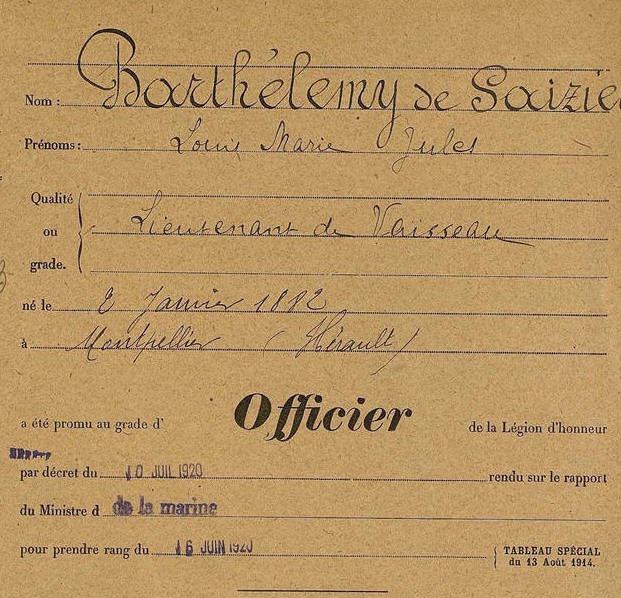 Nom : Barthélemy de Saizieu
Prénoms : Louis Marie Jules
Qualité
ou Lieutenant de Vaisseau
grade.
né le 2 Janvier 1882
à Montpellier (Hérault)
a été promu au grade d' Officier de la Légion d'honneur
par décret du 10 JUIL 1920 rendu sur le rapport
du Ministre d de la marine
pour prendre rang du 16 JUIN 1920
TABLEAU SPÉCIAL
du 13 Août 1914.